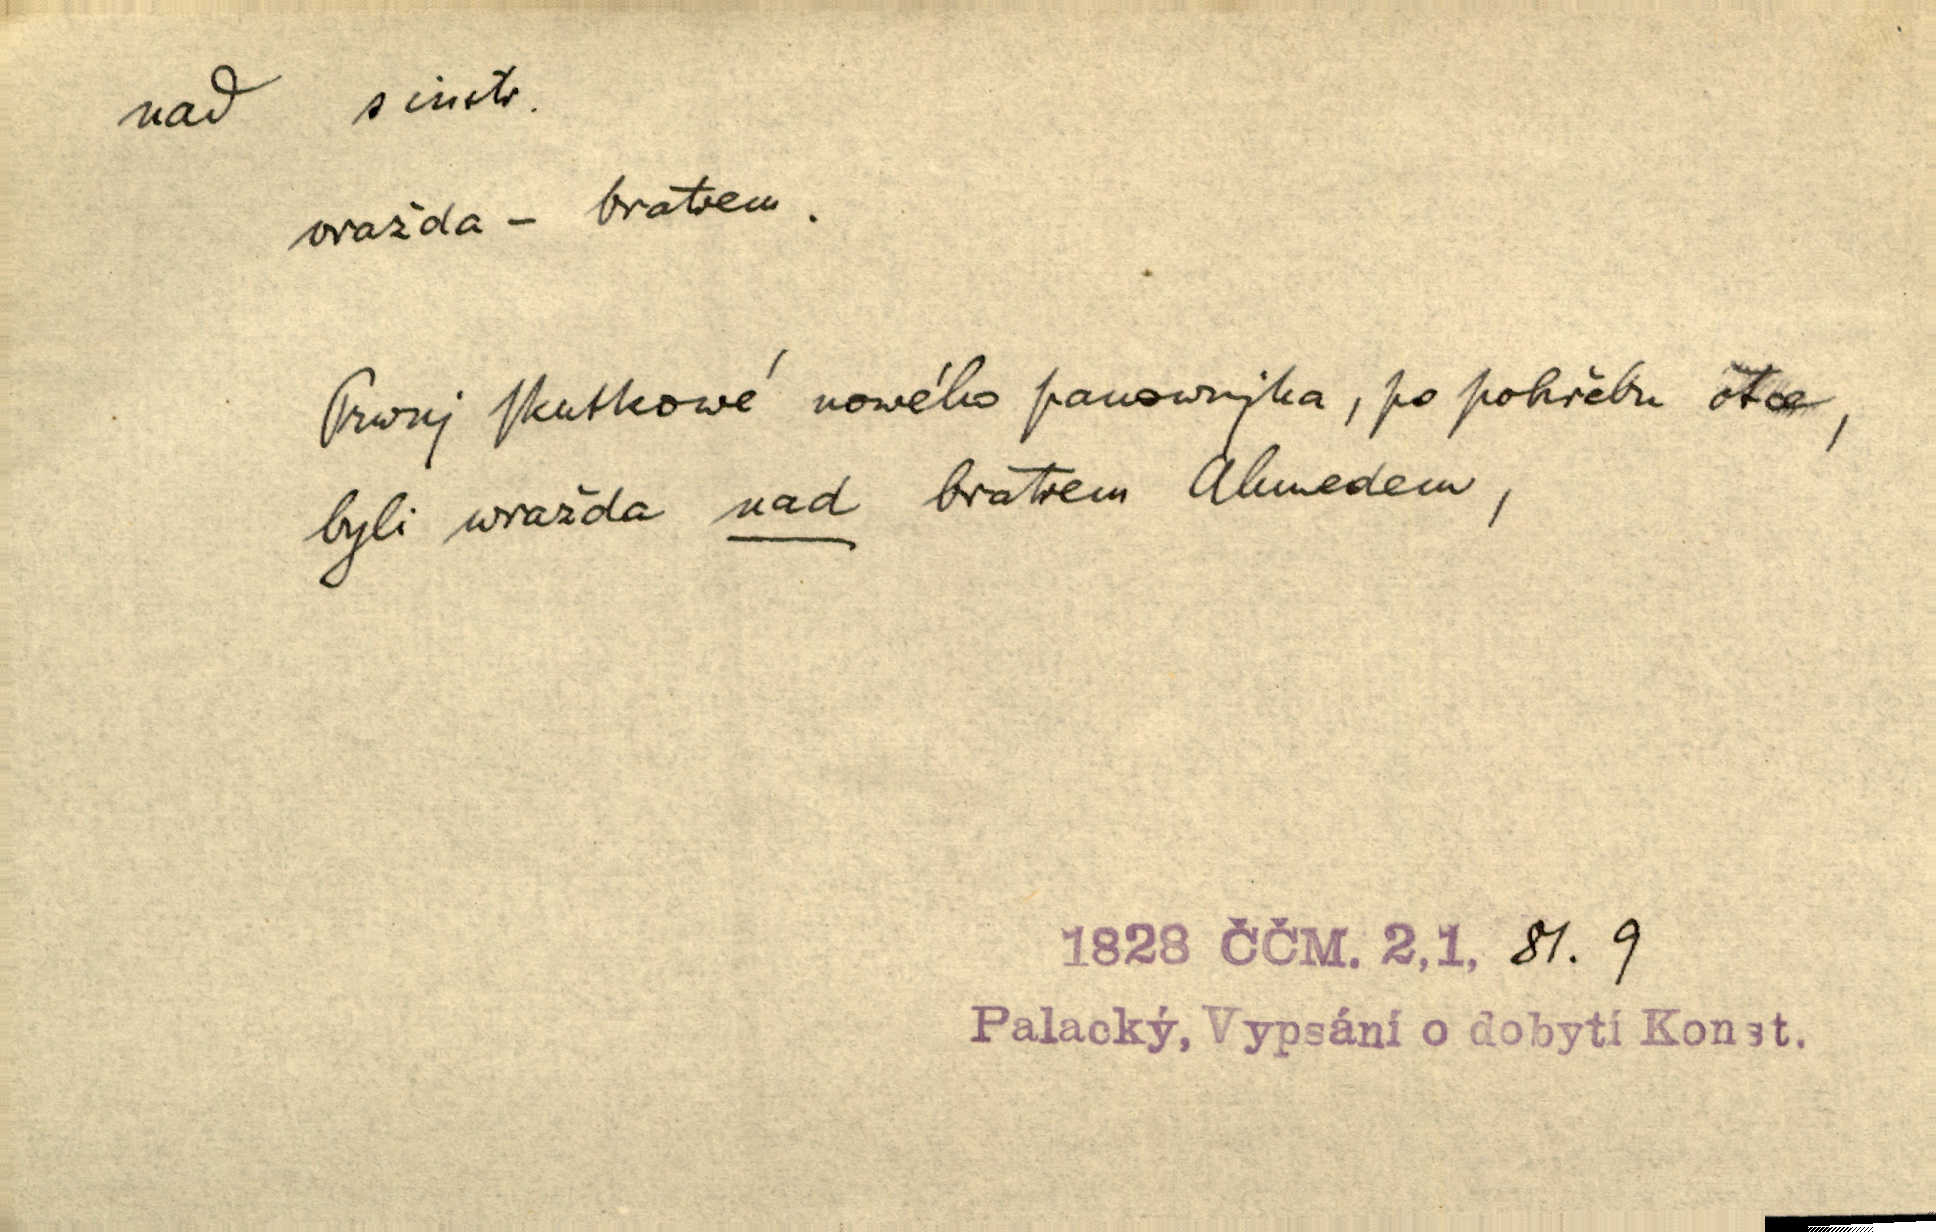 nad s instr.
vražda – bratrem.
Prwnj skutkowé nového panownjka, po pohřebu otce,
byli wražda nad bratrem Ahmedem,
1828 ČČM. 2,1, 81. 9
Palacký, Vypsání o dobytí Konst.